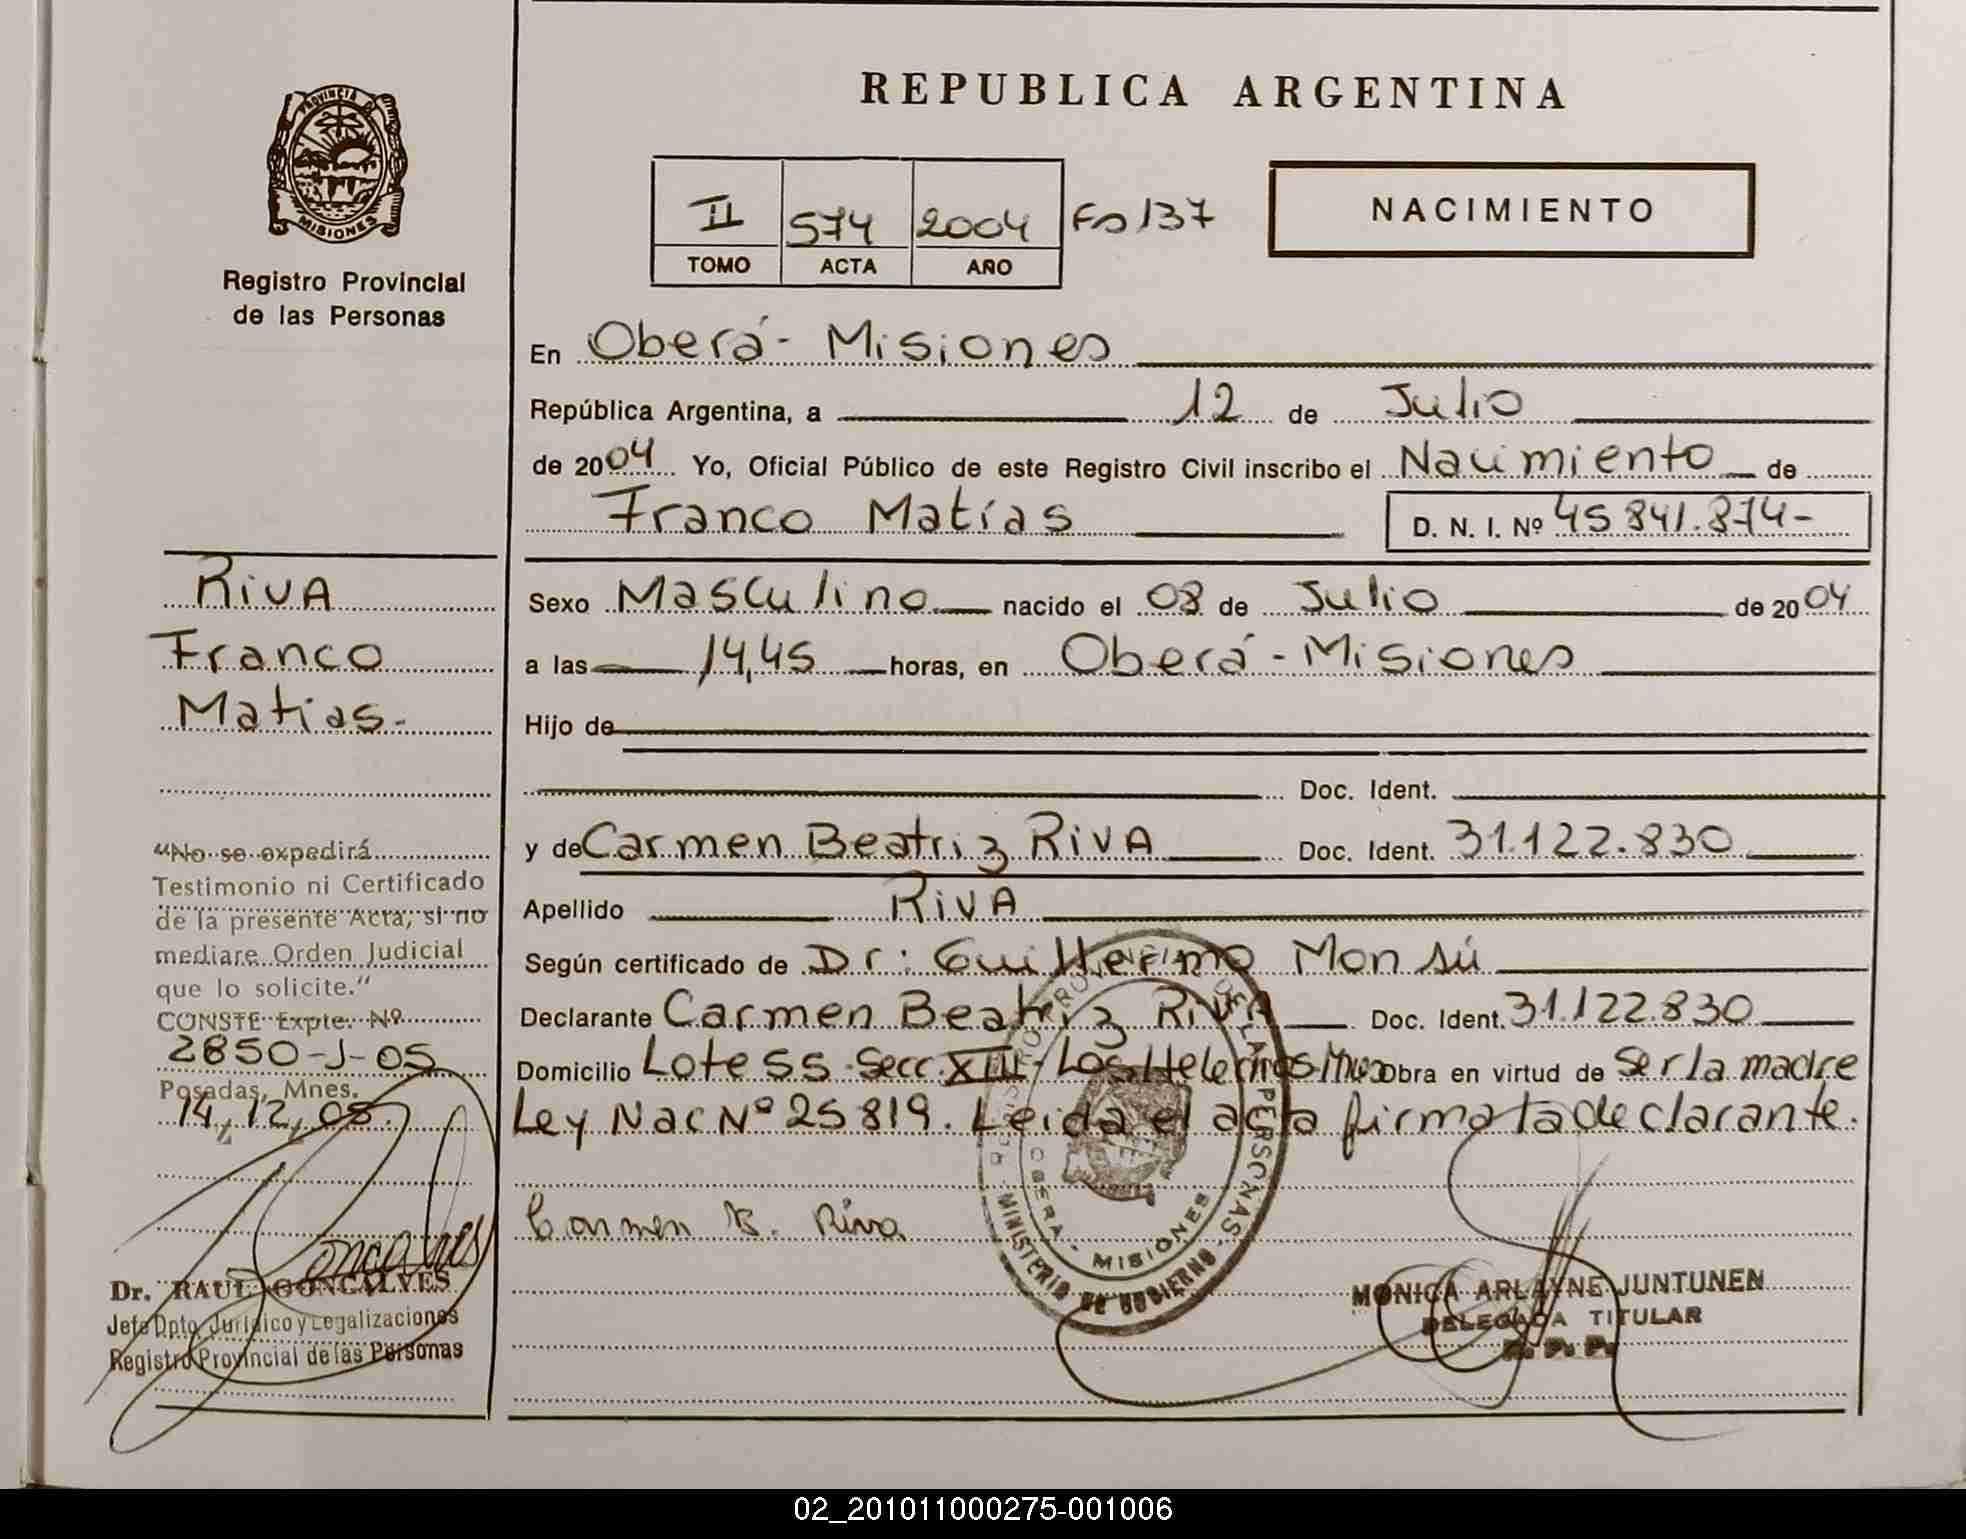 PROVINCIA DE
MISIONES
Registro Provincial
de las Personas
REPUBLICA ARGENTINA
II 574 2004 Fo 137
TOMO ACTA AÑO
NACIMIENTO
En Oberá - Misiones
República Argentina, a 12 de Julio
de 2004 Yo, Oficial Público de este Registro Civil inscribo el Nacimiento de
Franco Matías D. N. I. Nº 45 841.874-
Sexo Masculino nacido el 08 de Julio de 2004
a las 14,45 horas, en Oberá - Misiones
Hijo de
Doc. Ident.
y de Carmen Beatriz RIVA Doc. Ident. 31.122.830
Apellido RIVA
Según certificado de Dr: Guillermo Monsú
Declarante Carmen Beatriz RIVA Doc. Ident. 31.122.830
Domicilio Lote 55 Secc. XIII - Los Helechos Mnes Obra en virtud de Ser la madre
Ley Nac Nº 25819. Leida el acta firma la declarante.
Carmen B. Riva
OBERA - MISIONES
MINISTERIO DE GOBIERNO
MONICA ARLAYNE JUNTUNEN
DELEGADA TITULAR
R. P. P.
RIVA
Franco
Matias.-
"No se expedirá
Testimonio ni Certificado
de la presente Acta, si no
mediare Orden Judicial
que lo solicite."
CONSTE Expte. Nº
2850-J-05
Posadas, Mnes.
14,12,05.
Goncalves
Dr. RAUL GONCALVES
Jefe Dpto. Jurídico y Legalizaciones
Registro Provincial de las Personas
02_201011000275-001006